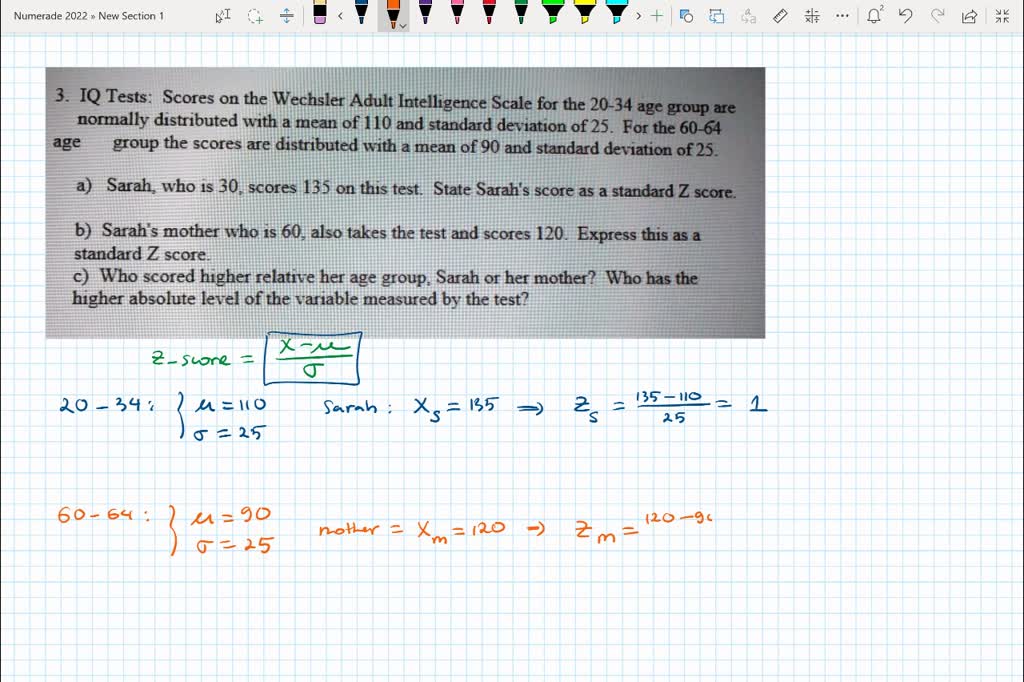 Numerade 2022 » New Section 1
2
3. IQ Tests: Scores on the Wechsler Adult Intelligence Scale for the 20-34 age group are
normally distributed with a mean of 110 and standard deviation of 25. For the 60-64
age group the scores are distributed with a mean of 90 and standard deviation of 25.
a) Sarah, who is 30, scores 135 on this test. State Sarah's score as a standard Z score.
b) Sarah's mother who is 60, also takes the test and scores 120. Express this as a
standard Z score.
c) Who scored higher relative her age group, Sarah or her mother? Who has the
higher absolute level of the variable measured by the test?
z-score = x-μ / σ
20-34: } μ=110 Sarah: X_s = 135 ⇒ Z_s = 135-110 / 25 = 1
σ=25
60-64: } μ=90 mother = X_m = 120 ⇒ Z_m = 120-9
σ=25